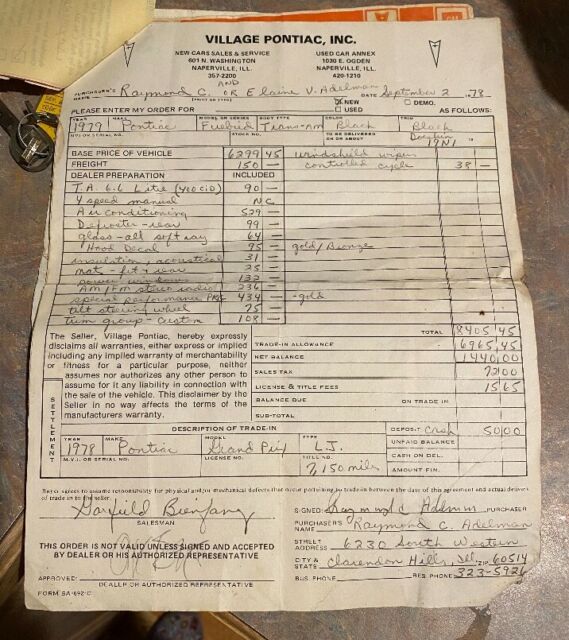 VILLAGE PONTIAC, INC.
NEW CARS SALES & SERVICE
601 N. WASHINGTON
NAPERVILLE, ILL.
357-2200
USED CAR ANNEX
1030 E. OGDEN
NAPERVILLE, ILL.
420-1210
PURCHASER'S NAME Raymond C. AND OR Elaine V. Adelman DATE September 2 1978
(PRINT OR TYPE)
PLEASE ENTER MY ORDER FOR NEW USED DEMO. AS FOLLOWS:
YEAR MAKE MODEL OR SERIES BODY TYPE COLOR TRIM
1979 Pontiac Firebird Trans-Am Black Black
STOCK NO. TO BE DELIVERED ON OR ABOUT 19N1
BASE PRICE OF VEHICLE 6299 45 windshield wiper
FREIGHT 150 — controlled cycle 38 —
DEALER PREPARATION INCLUDED
T.A. 6.6 Litre (400 CID) 90 —
4 speed manual NC
Air conditioning 529 —
Defroster-rear 99 —
glass-all soft ray 64 —
Hood Decal 95 — gold/Bronze
insulation, acoustical 31 —
mat-fit + rear 25 —
power windows 132 —
AM/FM stereo radio 236 —
special performance PKG 434 — -gold
tilt steering wheel 75 —
trim group-custom 108 —
The Seller, Village Pontiac, hereby expressly
disclaims all warranties, either express or implied
including any implied warranty of merchantability
or fitness for a particular purpose, neither
assumes nor authorizes any other person to
assume for it any liability in connection with
the sale of the vehicle. This disclaimer by the
Seller in no way affects the terms of the
manufacturers warranty.
TOTAL 8405 45
TRADE-IN ALLOWANCE 6965 45
NET BALANCE 1440 00
SALES TAX 72 00
LICENSE & TITLE FEES 15 65
BALANCE DUE ON TRADE IN
SUB-TOTAL
SETTLEMENT
DESCRIPTION OF TRADE-IN
DEPOSIT Cash 50 00
YEAR MAKE MODEL TYPE
1978 Pontiac Grand Prix L.J.
UNPAID BALANCE
M.V.I. OR SERIAL NO. LICENSE NO. TITLE NO.
7,150 miles
CASH ON DEL.
AMOUNT FIN.
Buyer agrees to assume responsibility for physical and/or mechanical defects that occur pertaining to trade-in between the date of this agreement and actual delivery
of trade in to the seller.
SALESMAN
SIGNED Raymond C Adelman PURCHASER
PURCHASERS NAME Raymond C. Adelman
STREET ADDRESS 6230 South Western
CITY & STATE Clarendon Hills, Ill. ZIP 60514
BUS. PHONE RES. PHONE 323-5926
THIS ORDER IS NOT VALID UNLESS SIGNED AND ACCEPTED
BY DEALER OR HIS AUTHORIZED REPRESENTATIVE
APPROVED:
DEALER OR AUTHORIZED REPRESENTATIVE
FORM SA-692-C